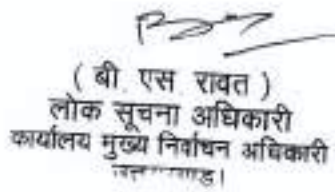 ( बी एस रावत )
लोक सूचना अधिकारी
कार्यालय मुख्य निर्वाचन अधिकारी